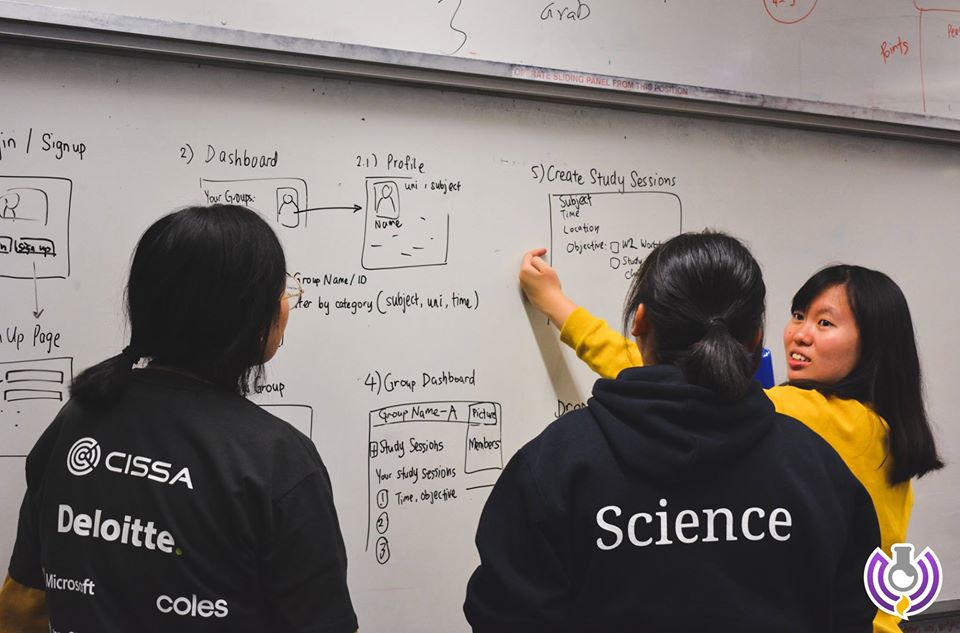 Grab
Points
OPERATE SLIDING PANEL FROM THIS POSITION
/ Signup
sign up
Up Page
2) Dashboard
Your Groups:
2.1) Profile
uni, subject
Name
Group Name/ID
by category (subject, uni, time)
Group
4) Group Dashboard
Group Name-A
Picture
Study Sessions
Members
Your study sessions
1 Time, objective
2
3
5) Create Study Sessions
Subject
Time
Location
Objective:
Study
CISSA
Deloitte.
Microsoft
coles
Science